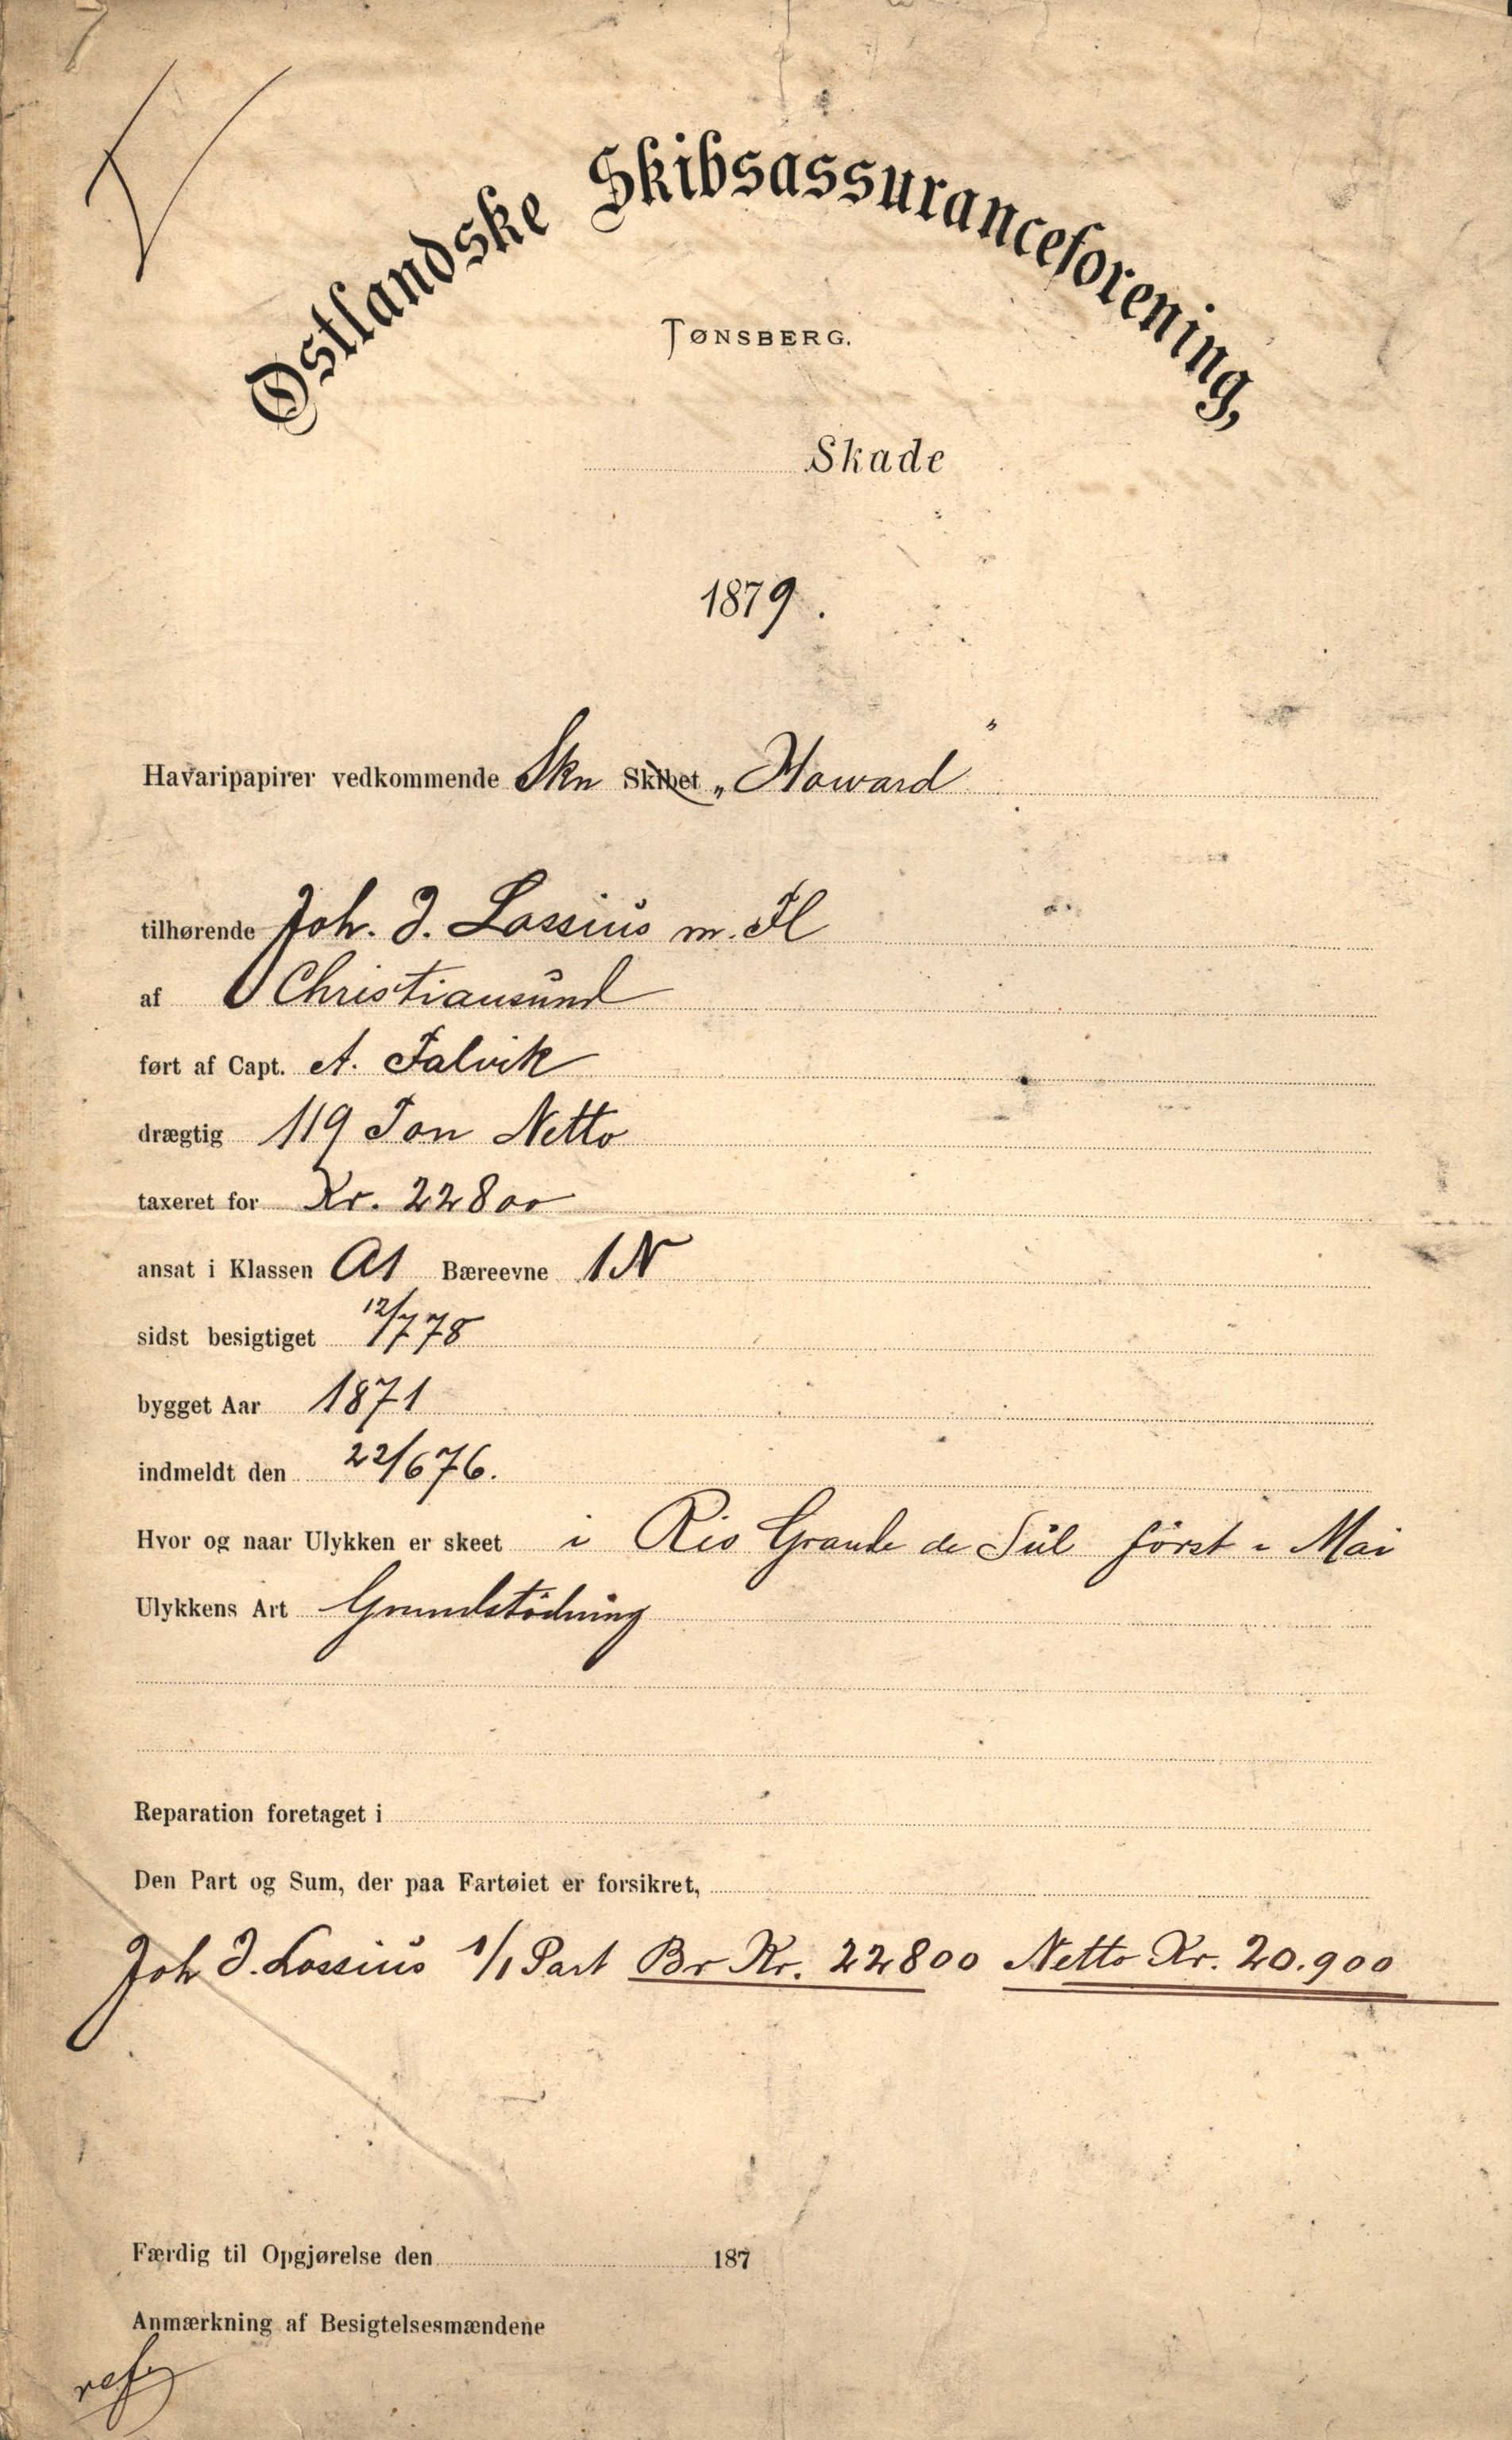 Østlandske Skibsassuranceforening,
TØNSBERG.
Skade
1879.
Havaripapirer vedkommende Skn Skibet „Howard"
tilhørende Joh. J. Lossius m. Fl
af Christiansund
ført af Capt. A. Falvik
drægtig 119 Ton Netto
taxeret for Kr. 22800
ansat i Klassen A1 Bæreevne 1 N
sidst besigtiget 12/7 78
bygget Aar 1871
indmeldt den 22/6 76.
Hvor og naar Ulykken er skeet i Rio Grande de Sul først i Mai
Ulykkens Art Grundstødning
Reparation foretaget i
Den Part og Sum, der paa Fartøiet er forsikret,
Joh J. Lossius 1/1 Part Br Kr. 22800 Netto Kr. 20.900
Færdig til Opgjørelse den 187
Anmærkning af Besigtelsesmændene